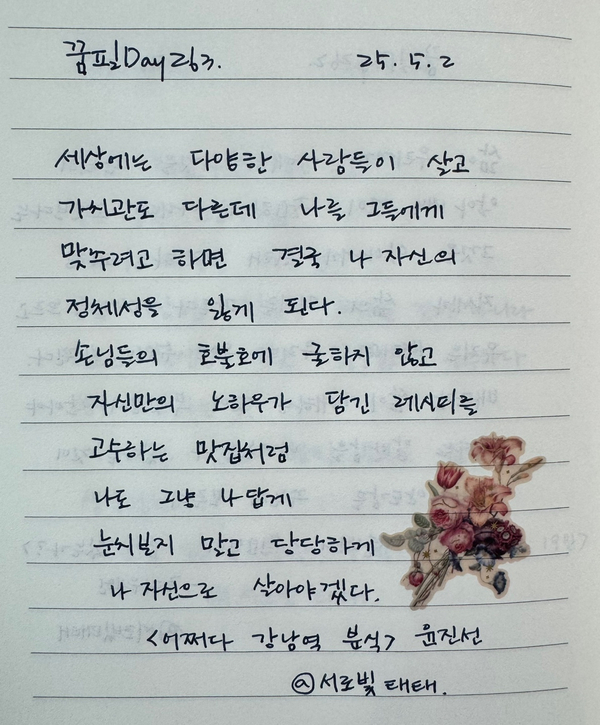 꿈필Day 263. 25. 5. 2
세상에는 다양한 사람들이 살고
가치관도 다른데 나를 그들에게
맞추려고 하면 결국 나 자신의
정체성을 잃게 된다.
손님들의 호불호에 굴하지 않고
자신만의 노하우가 담긴 레시피를
고수하는 맛집처럼
나도 그냥 나답게
눈치보지 말고 당당하게
나 자신으로 살아야겠다.
<어쩌다 강남역 분식> 윤진선
@서로빛 태태.